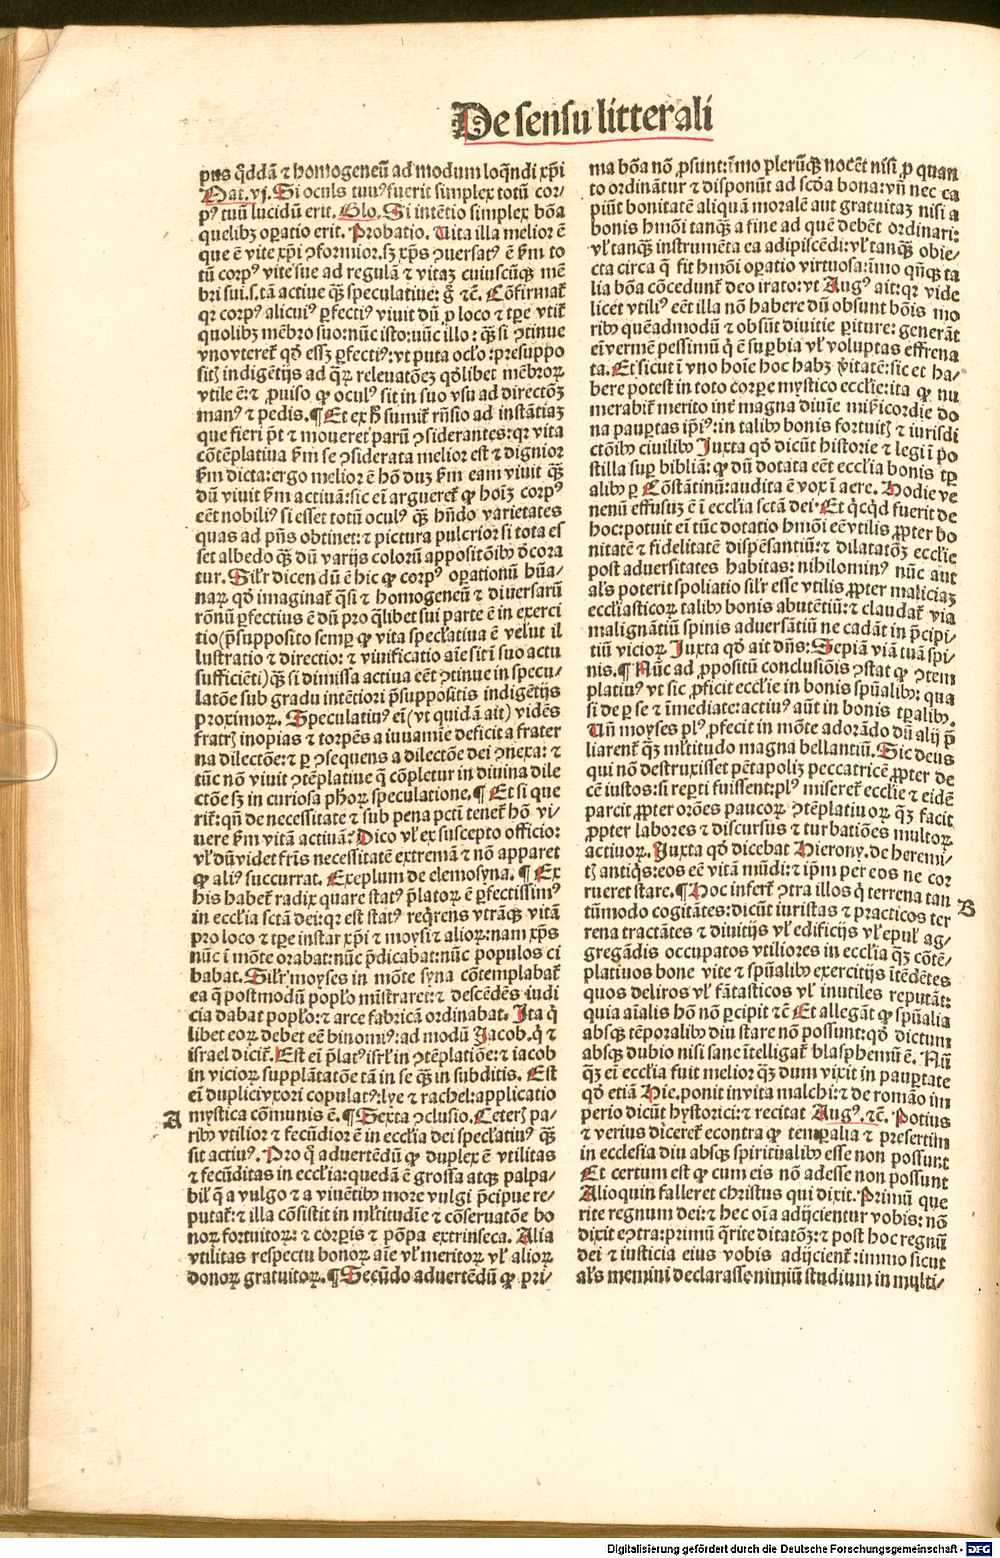 De sensu litterali
pus q̄ddā ⁊ homogeneū ad modum loq̄ndi xp̄i
Mat. vj. Si oculꝰ tuuꝰ fuerit simplex totū cor/
pꝰ tuū lucidū erit. Glo. Si intētio simplex bōa
quelibꝫ oꝑatio erit. Probatio. Uita illa melior ē
que ē vite xp̄i ꝯformior. sꝫ xp̄s ꝯuersatꝰ ē ẜm to
tū corpꝰ vite sue ad regulā ⁊ vitaꝫ cuiuscūqꝫ mē
bri sui. s. tā actiue qꝫ̄ speculatiue: ḡ ⁊c̄. Cōfirmat̄
qꝛ corpꝰ alicuiꝰ ꝑfectiꝰ viuit dū ꝓ loco ⁊ tꝑe vtit̄
quolibꝫ mēbro suo: nūc isto: nūc illo: qꝫ̄ si ꝯtinue
vno vteret̄ qd̄ essꝫ ꝑfectiꝰ: vt puta oclo: presuppo
sitꝭ indigētijs ad q̄ꝝ releuatōeꝫ qd̄libet mēbroꝝ
vtile ē: ⁊ ꝓuiso ꝙ oculꝰ sit in suo vsu ad directōꝫ
manꝰ ⁊ pedis. ¶ Et ex h̄ sumit̄ rn̄sio ad instātiaꝫ
que fieri p̄t ⁊ moueret parū ꝯsiderantes: qꝛ vita
cōtēplatiua ẜm se ꝯsiderata melior est ⁊ dignior
ẜm dicta: ergo melior ē hō duꝫ ẜm eam viuit qꝫ̄
dū viuit ẜm actiuā: sic ei̅ argueret̄ ꝙ hoīꝫ corpꝰ
eēt nobiliꝰ si esset totū oculꝰ qꝫ̄ hn̄do varietates
quas ad pn̄s obtinet: ⁊ pictura pulcrior si tota es
set albedo qꝫ̄ dū varijs colorū appositōibꝰ d̄cora
tur. Silr̄ dicendū ē hic ꝙ corpꝰ oꝑationū hūa/
naꝝ qd̄ imaginat̄ q̄si ⁊ homogeneū ⁊ diuersarū
rōnū ꝑfectius ē dū pro q̄libet sui parte ē in exerci
tio (p̄supposito semꝑ ꝙ vita speclatiua ē velut il
lustratio ⁊ directio: ⁊ viuificatio aīe sit ī suo actu
sufficiēti) qꝫ̄ si dimissa actiua eēt ꝯtinue in specu/
latōe sub gradu intētiori p̄suppositis indigētijs
proximoꝝ. Speculatiuꝰ ei̅ (vt quidā ait) vidēs
fratrꝭ inopias ⁊ torpēs a iuuamīe deficit a frater
na dilectōe: ⁊ ꝑ ꝯsequens a dilectōe dei ꝯnexa: ⁊
tūc nō viuit ꝯtēplatiue q̄ cōpletur in diuina dile
ctōe sꝫ in curiosa ph̄oꝝ speculatione. ¶ Et si que
rit̄: qn̄ de necessitate ⁊ sub pena pcti tenet̄ hō vi/
uere ẜm vitā actiuā? Dico vl̄ ex suscepto officio:
vl̄ dū videt fr̄is necessitatē extremā ⁊ nō apparet
ꝙ aliꝰ succurrat. Exeplum de elemosyna. ¶ Ex
his habet̄ radix quare statꝰ p̄latoꝝ ē ꝑfectissimꝰ
in eccl̄ia sctā dei: qꝛ est statꝰ req̄rens vtrāqꝫ vitā
pro loco ⁊ tꝑe instar xp̄i ⁊ moysi ⁊ alioꝝ: nam xp̄s
nūc ī mōte orabat: nūc p̄dicabat: nūc populos ci
babat. Silr̄ moyses in mōte syna cōtemplabat̄
ea q̄ postmodū poplo mīstraret: ⁊ descēdēs iudi
cia dabat poplo: ⁊ arce fabricā ordinabat. Ita q̄
libet eoꝝ debet eē binomiꝰ: ad modū Jacob. q̄ ⁊
israel dicit̄. Est ei̅ p̄latꝰ isrl̄ in ꝯtēplatiōe: ⁊ iacob
in vicioꝝ supplātatōe tā in se qꝫ̄ in subditis. Est
ei̅ duplici vxori copulatꝰ: lye ⁊ rachel: applicatio
A mystica cōmunis ē. ¶ Sexta ꝯclusio. Ceterꝭ pa/
ribꝰ vtilior ⁊ fecūdior ē in eccl̄ia dei speclatiuꝰ qꝫ̄
sit actiuꝰ. Pro q̄ aduertēdū ꝙ duplex ē vtilitas
⁊ fecūditas in eccl̄ia: quedā ē grossa atqꝫ palpa/
bil̄ q̄ a vulgo ⁊ a viuētibꝰ more vulgi p̄cipue re/
putat̄: ⁊ illa cōsistit in ml̄titudīe ⁊ cōseruatōe bo
noꝝ fortuitoꝝ: ⁊ corꝑis ⁊ pōpa extrinseca. Alia
vtilitas respectu bonoꝝ aīe vl̄ meritoꝝ vl̄ alioꝝ
donoꝝ gratuitoꝝ. ¶ Secūdo aduertēdū ꝙ pri/
ma bōa nō ꝓsunt: īmo plerūqꝫ nocēt nisi ꝓ quan
to ordināt̄ur ⁊ disponūt ad scd̄a bona: vn̄ nec ca
piūt bonitatē aliquā moralē aut gratuitaꝫ nisi a
bonis hmōi tanqꝫ̄ a fine ad quē debēt ordinari:
vl̄ tanqꝫ̄ instrumēta ea adipiscēdi: vl̄ tanqꝫ̄ obie/
cta circa q̄ fit hmōi oꝑatio virtuosa: īmo qn̄qꝫ ta
lia bōa cōcedunt̄ deo irato: vt Augꝰ ait: qꝛ vide
licet vtiliꝰ eēt illa nō habere dū obsunt bōis mo
ribꝰ quēadmodū ⁊ obsūt diuitie ꝑiture: generāt
ei̅ vermē pessimū q̄ ē suꝑbia vl̄ voluptas effrena
ta. Et sicut ī vno hoīe hoc habꝫ v̄itatē: sic et ha/
bere potest in toto corꝑe mystico eccl̄ie: ita ꝙ nu
merabit̄ merito int̄ magna diuīe mīẜicordie do
na pauꝑtas ip̄iꝰ: in talibꝰ bonis fortuitꝭ ⁊ iurisdi
ctōibꝰ ciuilibꝰ Juxta qd̄ dicūt historie ⁊ legi ī po
stilla suꝑ bibliā: ꝙ dū dotata eēt eccl̄ia bonis tꝑ
alibꝰ ꝑ Cōstātinū: audita ē vox ī aere. Hodie ve
nenū effusuꝫ ē ī eccl̄ia sctā dei. Et q̄cq̄d fuerit de
hoc: potuit ei̅ tūc dotatio hmōi eē vtilis ꝓpter bo
nitatē ⁊ fidelitatē dispēsantiū: ⁊ dilatatōꝫ eccl̄ie
post aduersitates habitas: nihilominꝰ nūc aut
al̄s poterit spoliatio silr̄ esse vtilis ꝓpter maliciaꝫ
eccl̄iasticoꝝ talibꝰ bonis abutētiū: ⁊ claudat̄ via
malignātiū spinis aduersātiū ne cadāt in p̄cipi/
tiū vicioꝝ Juxta qd̄ ait dn̄s: Sepiā viā tuā spi/
nis. ¶ Nūc ad ꝓpositū conclusiōis ꝯstat ꝙ ꝯtem
platiuꝰ vt sic ꝓficit eccl̄ie in bonis spūalibꝰ: qua
si de ꝑ se ⁊ īmediate: actiuꝰ aūt in bonis tꝑalibꝰ.
Un̄ moyses plꝰ ꝓfecit in mōte adorādo dū alij p̄
liarent̄ qꝫ̄ ml̄titudo magna bellantiū. Sic deus
qui nō destruxisset pētapoliꝫ peccatricē ꝓpter de
cē iustos: si reꝑti fuissent: plꝰ miseret̄ eccl̄ie ⁊ eidē
parcit ꝓpter orōes paucoꝝ ꝯtēplatiuoꝝ qꝫ̄ facit
ꝓpter labores ⁊ discursus ⁊ turbatiōes multoꝝ
actiuoꝝ. Juxta qd̄ dicebat Hierony. de heremi/
tꝭ antiqꝰ: eos eē vitā mūdi: ⁊ ip̄m per eos ne cor
rueret stare. ¶ Hoc infert̄ ꝯtra illos q̄ terrena tan B
tūmodo cogitātes: dicūt iuristas ⁊ practicos ter
rena tractātes ⁊ diuitijs vl̄ edificijs vl̄ epul̄ ag/
gregādis occupatos vtiliores in eccl̄ia qꝫ̄ cōtē/
platiuos bone vite ⁊ spūalibꝰ exercitijs ītēdētes
quos deliros vl̄ fātasticos vl̄ inutiles reputāt:
quia aīalis hō nō ꝑcipit ⁊c̄ Et allegāt ꝙ spūalia
absqꝫ tēporalibꝰ diu stare nō possunt: qd̄ dictum
absqꝫ dubio nisi sane ītelligat̄ blasphemū ē. Nū
qꝫ̄ ei̅ eccl̄ia fuit melior qꝫ̄ dum vixit in pauꝑtate
qd̄ etiā Hie. ponit in vita malchi: ⁊ de romāo im
perio dicūt hystorici: ⁊ recitat Augꝰ. ⁊c̄. Potius
⁊ verius diceret̄ econtra ꝙ temꝑalia ⁊ presertim
in ecclesia diu absqꝫ spiritualibꝰ esse non possunt
Et certum est ꝙ cum eis nō adesse non possunt
Alioquin falleret christus qui dixit. Primū que
rite regnum dei: ⁊ hec oīa adijcientur vobis: nō
dixit eꝯtra: primū q̄rite ditatōꝫ: ⁊ post hoc regnū
dei ⁊ iusticia eius vobis adijcient̄: immo sicut
al̄s memini declarasse nimiū studium in multi/
Digitalisierung gefördert durch die Deutsche Forschungsgemeinschaft - DFG